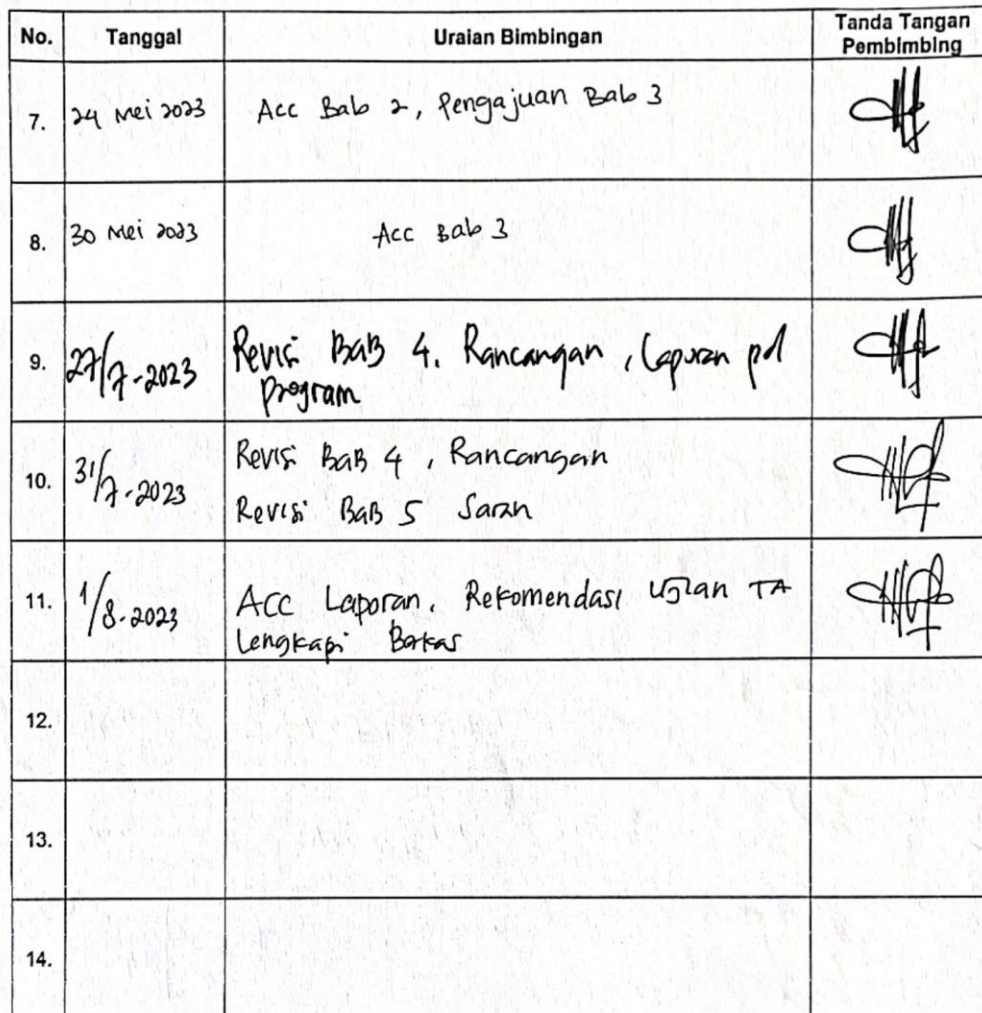 No. Tanggal Uraian Bimbingan Tanda Tangan Pembimbing
7. 24 Mei 2023 Acc Bab 2, Pengajuan Bab 3
8. 30 Mei 2023 Acc Bab 3
9. 27/7-2023 Revisi BaB 4. Rancangan, Laporan pd
program
10. 31/7-2023 Revisi BaB 4, Rancangan
Revisi BaB 5 Saran
11. 1/8-2023 ACC Laporan. Rekomendasi Ujian TA
Lengkapi Berkas
12.
13.
14.